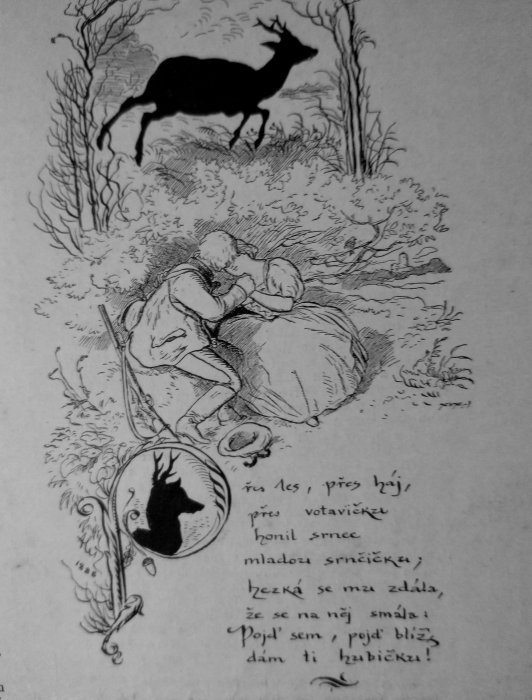 řes les, přes háj,
přes votavičku
honil srnec
mladou srnčičku;
hezká se mu zdála,
že se na něj smála:
Pojď sem, pojď blíž,
dám ti hubičku!